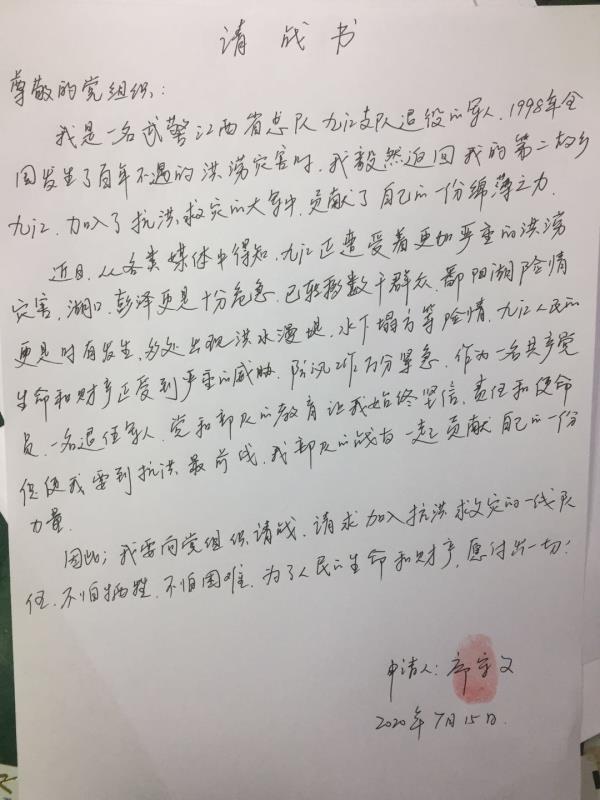 请战书
尊敬的党组织:
我是一名武警江西省总队九江支队退役的军人,1998年全
国发生了百年不遇的洪涝灾害时,我毅然返回我的第二故乡
九江,加入了抗洪救灾的大军中,贡献了自己的一份绵薄之力.
近日,从各类媒体中得知,九江正遭受着更加严重的洪涝
灾害,湖口、彭泽更是十分危急,已转移数千群众,鄱阳湖险情
更是时有发生,多处出现洪水漫堤,水下塌方等险情,九江人民的
生命和财产正受到严重的威胁,防汛工作万分紧急,作为一名共产党
员,一名退伍军人,党和部队的教育让我始终坚信,责任和使命
促使我要到抗洪最前线,我部队的战友一起贡献自己的一份
力量.
因此:我要向党组织请战,请求加入抗洪救灾的一线队
伍,不怕牺牲,不怕困难,为了人民的生命和财产,愿付出一切!
申请人: 文
2020年7月15日.